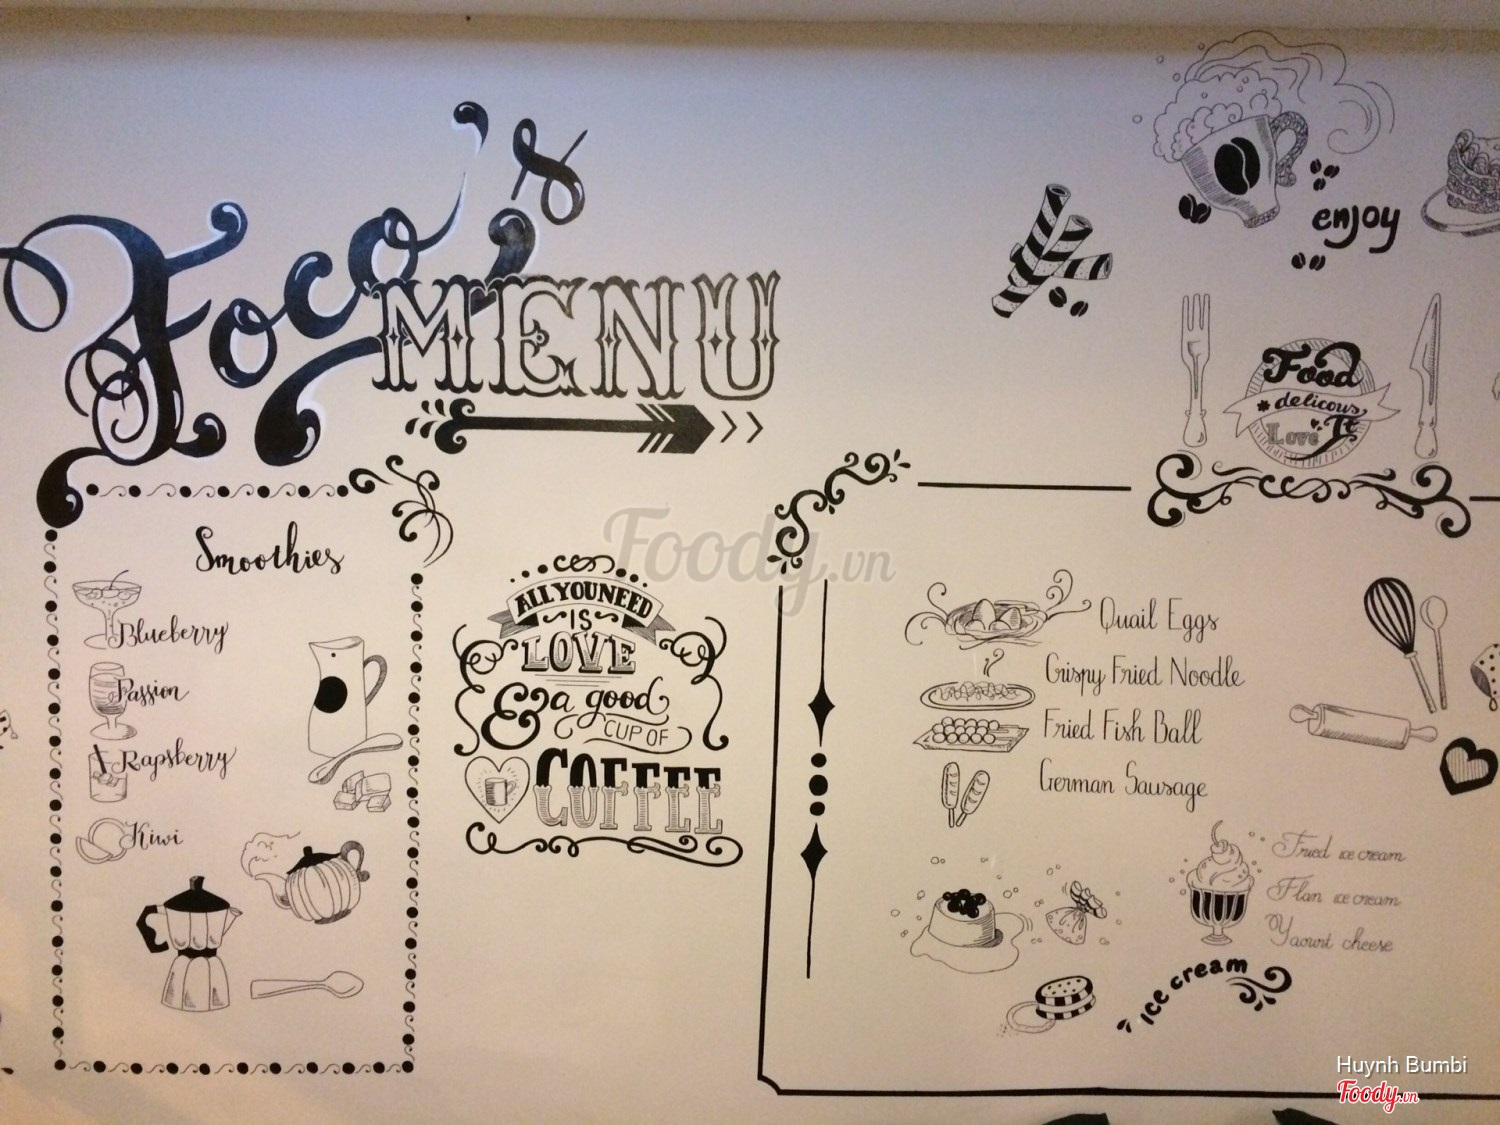 Foco's
MENU
Smoothies
Blueberry
Passion
Rapsberry
Kiwi
ALL YOU NEED
IS
LOVE
& a good
CUP OF
COFFEE
enjoy
Food
* delicous
Love It
Quail Eggs
Crispy Fried Noodle
Fried Fish Ball
German Sausage
Fried ice cream
Flan ice cream
Yaourt cheese
ice cream
Foody.vn
Huynh Bumbi
Foody.vn